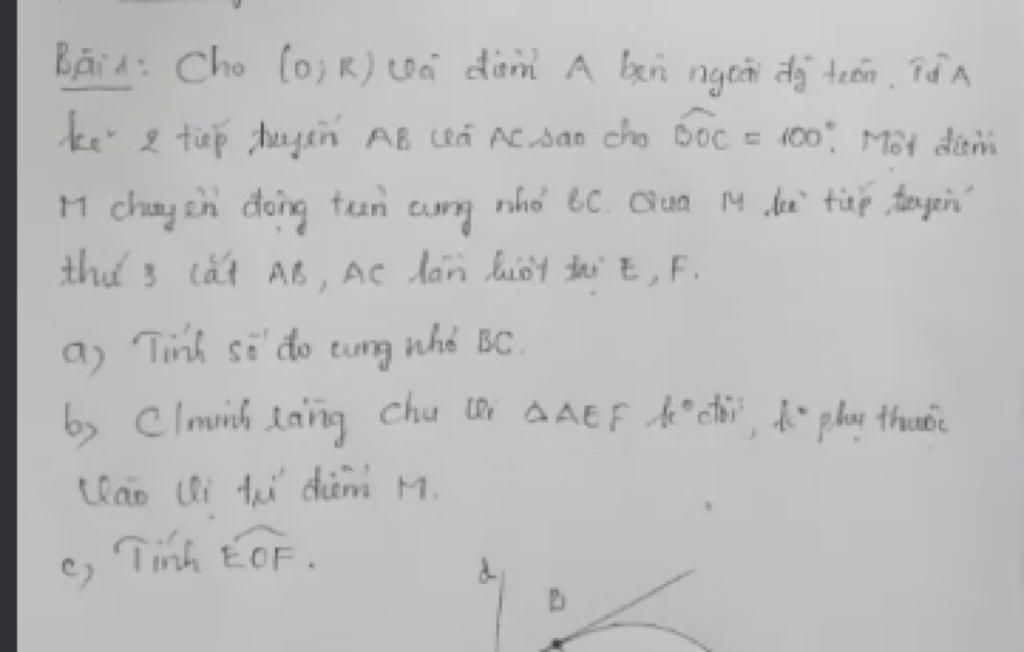 Bài 1: Cho (O; R) và điểm A bên ngoài đg tròn. Từ A
kẻ 2 tiếp tuyến AB và AC sao cho BOC = 100°. Một điểm
M chuyển động trên cung nhỏ BC. Qua M kẻ tiếp tuyến
thứ 3 cắt AB, AC lần lượt tại E, F.
a) Tính số đo cung nhỏ BC.
b) C/minh rằng chu vi ΔAEF k° đổi, k° phụ thuộc
vào vị trí điểm M.
c) Tính EOF.
d
B